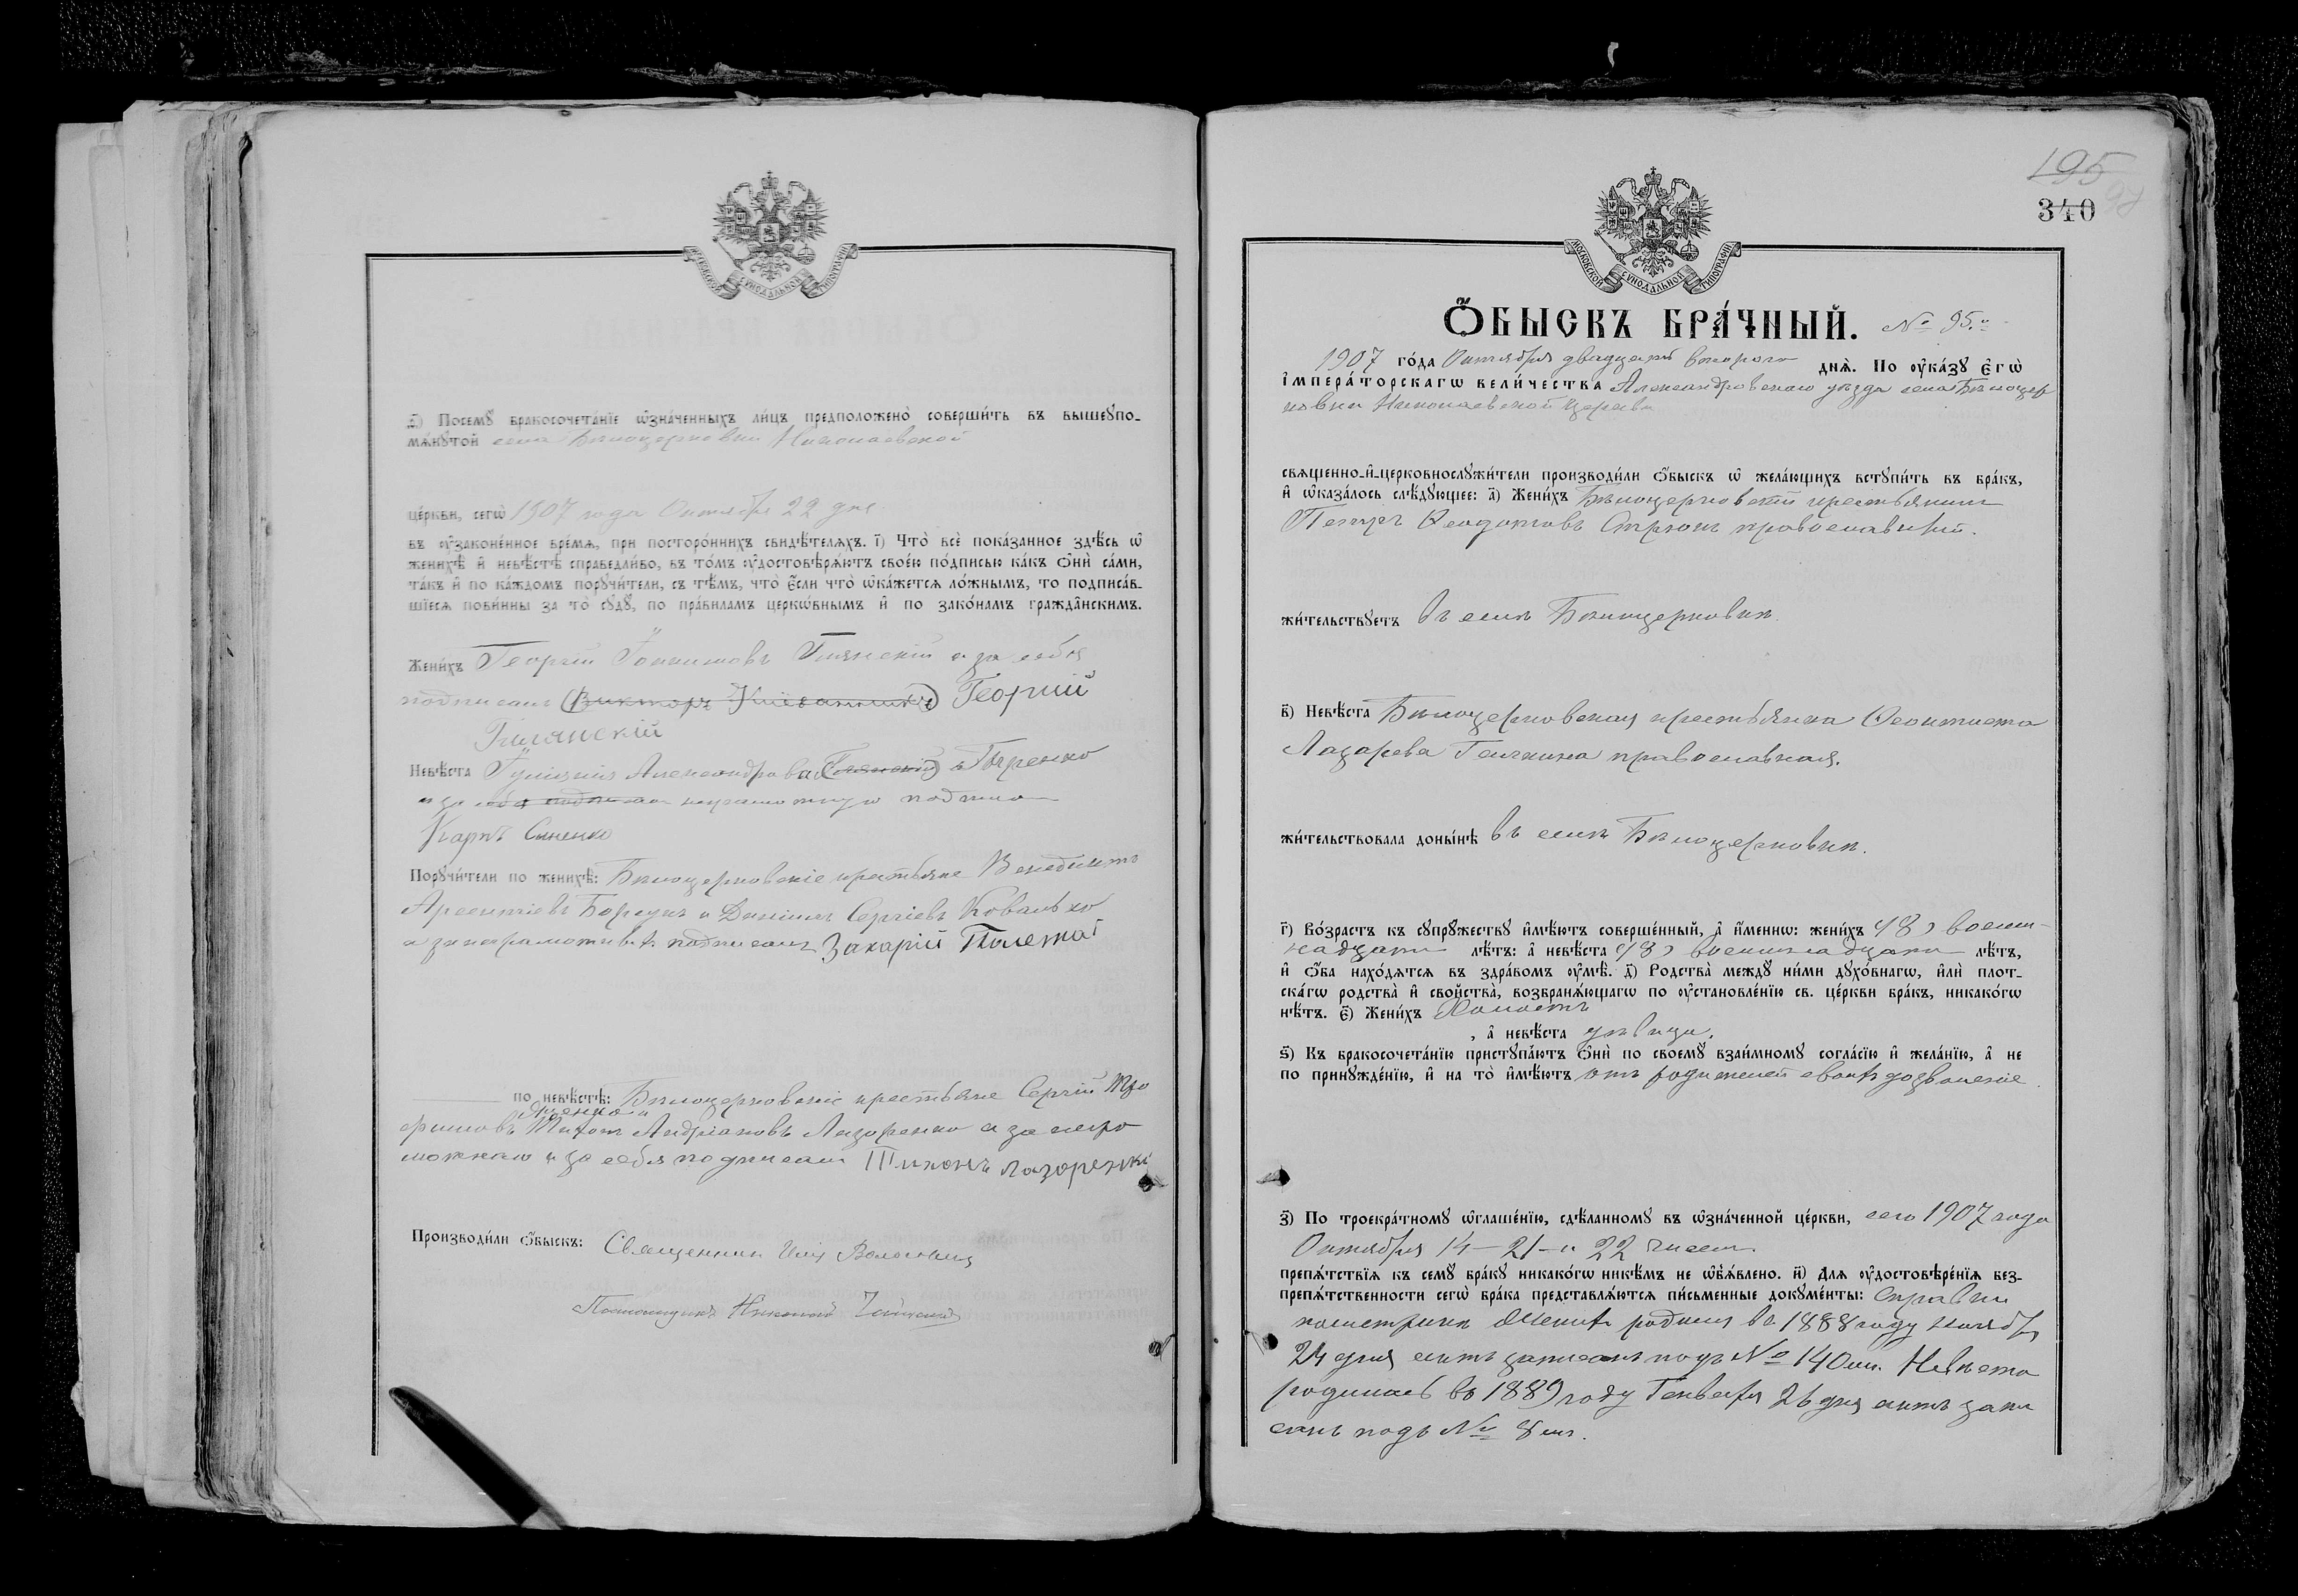 МОСКОВСКОЙ СѴНОДАЛЬНОЙ ТИПОГРАФІИ
Ѳ҃) Посемꙋ бракосочета́нїе ѡ҆зна́ченныхъ ли́цъ предположено̀ соверши́ть въ вышеꙋпо-
мѧ́нꙋтой села Бѣлоцерковки Николаевской
це́ркви, сегѡ̀ 1907 года Октября 22 дня
въ ᲂу҆зако́ненное вре́мѧ, при посторо́ннихъ свидѣ́телѧхъ. І҃) Что̀ всѐ пока́занное здѣ́сь ѡ҆
женихѣ̀ и҆ невѣ́стѣ справедли́во, въ то́мъ ᲂу҆достовѣрѧ́ютъ свое́ю по́дписью ка́къ ѻ҆нѝ са́ми,
та́къ и҆ по ка́ждомъ порꙋчи́тели, съ тѣ́мъ, что̀ є҆́сли что̀ ѡ҆ка́жетсѧ ло́жнымъ, то подписа́в-
шїесѧ пови́нны за то̀ сꙋдꙋ̀, по пра́виламъ церкѡ́внымъ и҆ по зако́намъ гражда́нскимъ.
Жени́хъ Георгій Іоакимовъ а за себя
подписалъ Викторъ Георгій
Невѣ́ста Александрова
неграмотную подписа
Карпъ Синенко
Порꙋчи́тели по женихѣ̀: Бѣлоцерковскіе крестьяне Венедиктъ
Арсентіевъ и Даніилъ Сергіевъ Ковалько
а за неграмотныхъ подписалъ Захарій
по невѣ́стѣ: Бѣлоцерковскіе крестьяне Сергій Тро
фимовъ Яценко и Тихонъ Андріановъ Лазоренко а за негра
мотнаго и за себя подписалъ Тихонъ Лазоренко
Производи́ли ѻ҆́быскъ: Священникъ Илія
Псаломщикъ Николай
195
340
МОСКОВСКОЙ СѴНОДАЛЬНОЙ ТИПОГРАФІИ
Ѻ҆́БЫСКЪ БРА́ЧНЫЙ. № 95.й
1907 го́да Октября двадцать второго днѧ̀. По ᲂу҆ка́зꙋ Є҆гѡ̀
І҆мпера́торскагѡ вели́чества Александровскаго уѣзда села Бѣлоцер
ковки Николаевской церкви
свѧщенно-и҆-церковнослꙋжи́тели производи́ли ѻ҆́быскъ ѡ҆ жела́ющихъ встꙋпи́ть въ бра́къ,
и҆ ѡ҆каза́лось слѣ́дꙋющее: а҃) Жени́хъ Бѣлоцерковскій крестьянинъ
Петръ Ѳеодотовъ православный.
жи́тельствꙋетъ въ селѣ Бѣлоцерковкѣ.
в҃) Невѣ́ста Бѣлоцерковская крестьянка Ѳеоктиста
Лазарева православная.
жи́тельствовала доны́нѣ въ селѣ Бѣлоцерковкѣ.
г҃) Во́зрастъ къ сꙋпрꙋ́жествꙋ и҆мѣ́ютъ соверше́нный, а҆ и҆́меннѡ: жени́хъ (18) восем-
надцати лѣ́тъ: а҆ невѣ́ста (18) восемнадцати лѣ́тъ,
и҆ ѻ҆́ба нахо́дѧтсѧ въ здра́вомъ ᲂу҆мѣ̀. д҃) Родства̀ междꙋ ни́ми дꙋхо́внагѡ, и҆лѝ плот-
ска́гѡ родства̀ и҆ свойства̀, возбранѧ́ющагѡ по ᲂу҆становле́нїю св. це́ркви бра́къ, никако́гѡ
нѣ́тъ. є҃) Жени́хъ Холостъ
, а҆ невѣ́ста дѣвица.
ѕ҃) Къ бракосочета́нїю пристꙋпа́ютъ ѻ҆нѝ по своемꙋ̀ взаи́мномꙋ согла́сїю и҆ жела́нїю, а҆ не
по принꙋжде́нїю, и҆ на то̀ и҆мѣ́ютъ отъ родителей своихъ дозволеніе.
з҃) По троекра́тномꙋ ѡ҆глаше́нїю, сдѣ́ланномꙋ въ ѡ҆зна́ченной це́ркви, сего 1907 года
Октября 14 – 21 – и 22 чиселъ
препѧ́тствїѧ къ семꙋ̀ бра́кꙋ никако́гѡ никѣ́мъ не ѡ҆б̾ѧ́влено. и҃) Длѧ ᲂу҆достовѣре́нїѧ без-
препѧ́тственности сегѡ̀ бра́ка представлѧ́ютсѧ пи́сьменные докꙋме́нты: справки
по метрикѣ Женихъ родился въ 1888 году Ноября
24 дня актъ записанъ подъ № 140мъ. Невѣста
родилась въ 1889 году Генваря 26 дня актъ запи
санъ подъ № 8мъ.